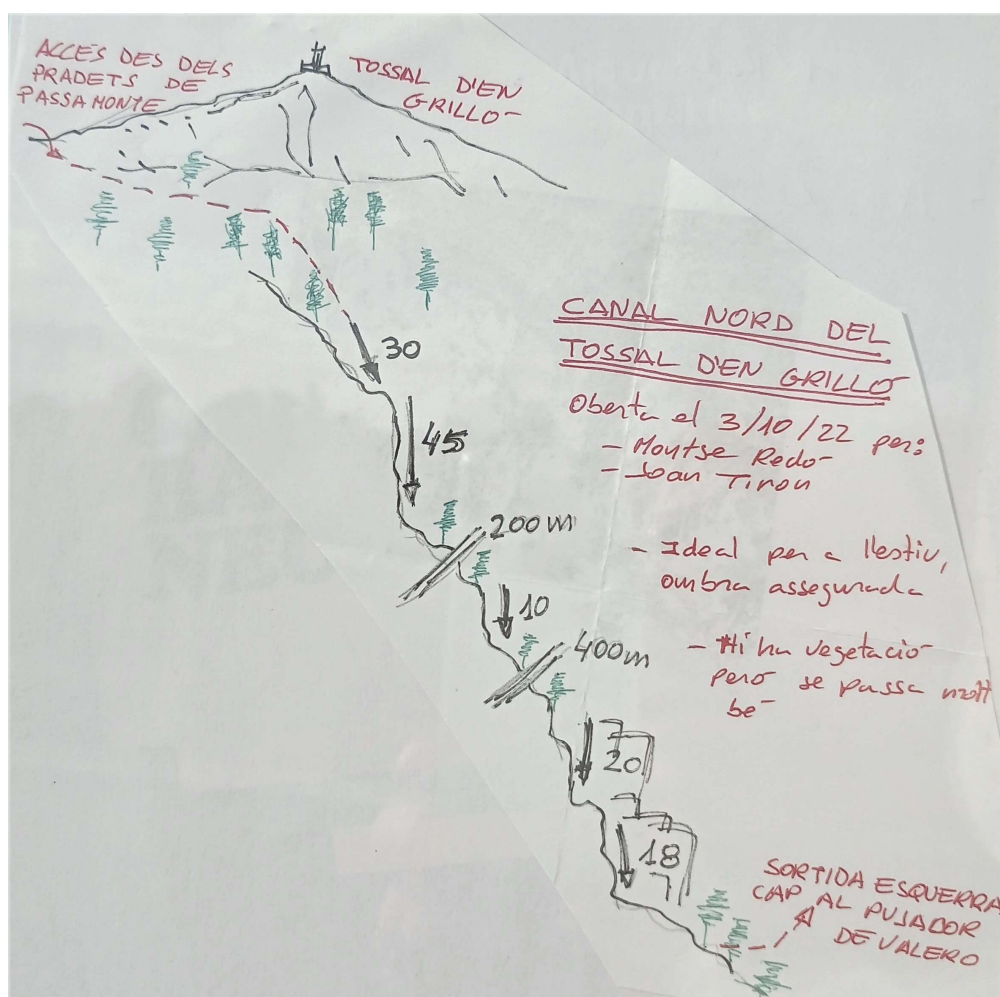 ACCÉS DES DELS
PRADETS DE
PASSAMONTE
TOSSAL D'EN
GRILLO
30
45
200 m
10
400m
20
18
CANAL NORD DEL
TOSSAL D'EN GRILLO
Oberta el 3/10/22 per:
- Montse Redó
- Joan Tirón
- Ideal per a l'estiu,
ombra assegurada
- Hi ha vegetació
però se passa molt
bé
SORTIDA ESQUERRA
CAP AL PUJADOR
DE VALERO